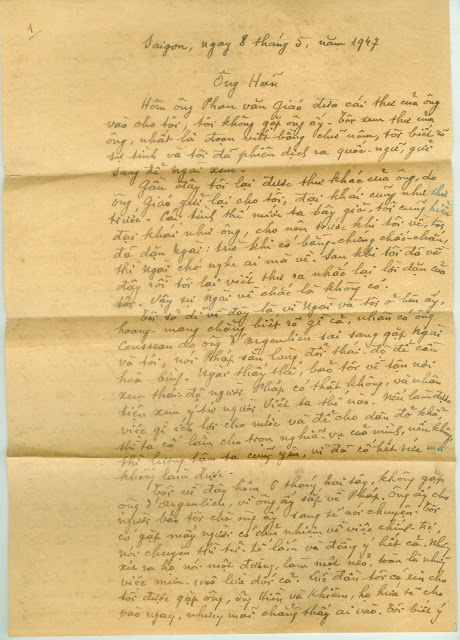 1
Saigon, ngay 8 tháng 5, năm 1947
Ông Hãn
Hôm ông Phan văn Giáo đưa cái thư của ông
vào cho tôi, tôi không gặp ông ấy. Tôi xem thư của
ông, nhất là đoạn viết bằng chữ nôm, tôi biết rõ
sự tình và tôi đã phiên dịch ra quốc-ngữ, gửi
sang để ngài xem.
Gần đây tôi lại được thư khác của ông, do
ông Giáo gửi lại cho tôi, đại khái cũng như thư
trước. Cái tình thế nước ta bây giờ, tôi cũng hiểu
đại khái như ông, cho nên trước khi tôi về, tôi
đã dặn Ngài: trừ khi có bằng-chứng chắc-chắn,
thì Ngài chớ nghe ai mà về. Sau khi tôi đã về
đây rồi tôi lại viết thư ra nhắc lại lời dặn của
tôi. Vậy sự Ngài về chắc là không có.
Tôi sở dĩ về đây là vì Ngài và tôi ở bên ấy,
hoang-mang chẳng biết rõ gì cả, nhân có ông
Cousseau do ông d'Argenlieu sai sang gặp Ngài
và tôi, nói Pháp sẵn lòng đổi thái-độ để cầu
hoà-bình. Ngài thấy thế, bảo tôi về tận nơi
xem thái-độ người Pháp có thật không, và nhân
tiện xem ý-tứ người Việt ta thế nào. Nếu làm được
việc gì ích lợi cho nước và để cho dân đỡ khổ,
thì ta cố làm cho trọn nghĩa-vụ của mình, nếu không,
thì lương tâm ta cũng yên, vì đã cố hết sức mà
không làm được.
Tôi về đây hôm 6 tháng hai tây, không gặp
ông d'Argenlieu, vì ông ấy sắp về Pháp. Ông ấy cho
người bảo tôi chờ ông ấy sang sẽ nói chuyện. Tôi
có gặp mấy người có chủ nhiệm về việc chính-trị,
nói chuyện thì tử-tế lắm và đồng ý hết cả. Nhưng
xét ra họ nói một đường, làm một nẻo, toàn là những
việc mưu-mô lừa dối cả. Lúc đầu tôi có xin cho
tôi được gặp ông, ông Hiền và Khiêm, họ hứa sẽ cho
vào ngay, nhưng mãi chẳng thấy ai vào. Tôi biết ý